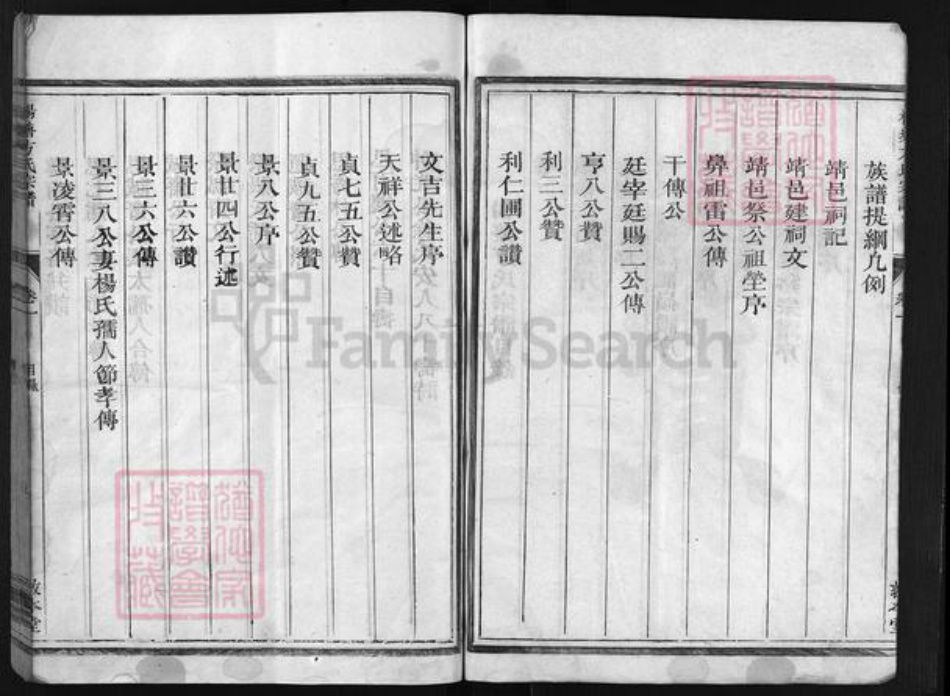 族譜提綱凡例
靖邑祠記
靖邑建祠文
靖邑祭公祖塋序
鼻祖雷公傳
干傳公
廷宰廷賜二公傳
亨八公贊
利三公贊
利仁圃公讚
文吉先生序
天祥公述略
貞七五公贊
貞九五公贊
景八公序
景廿四公行述
景廿六公讚
景三六公傳
景三八公妻楊氏孺人節孝傳
景凌霄公傳
方氏宗譜
卷一
FamilySearch